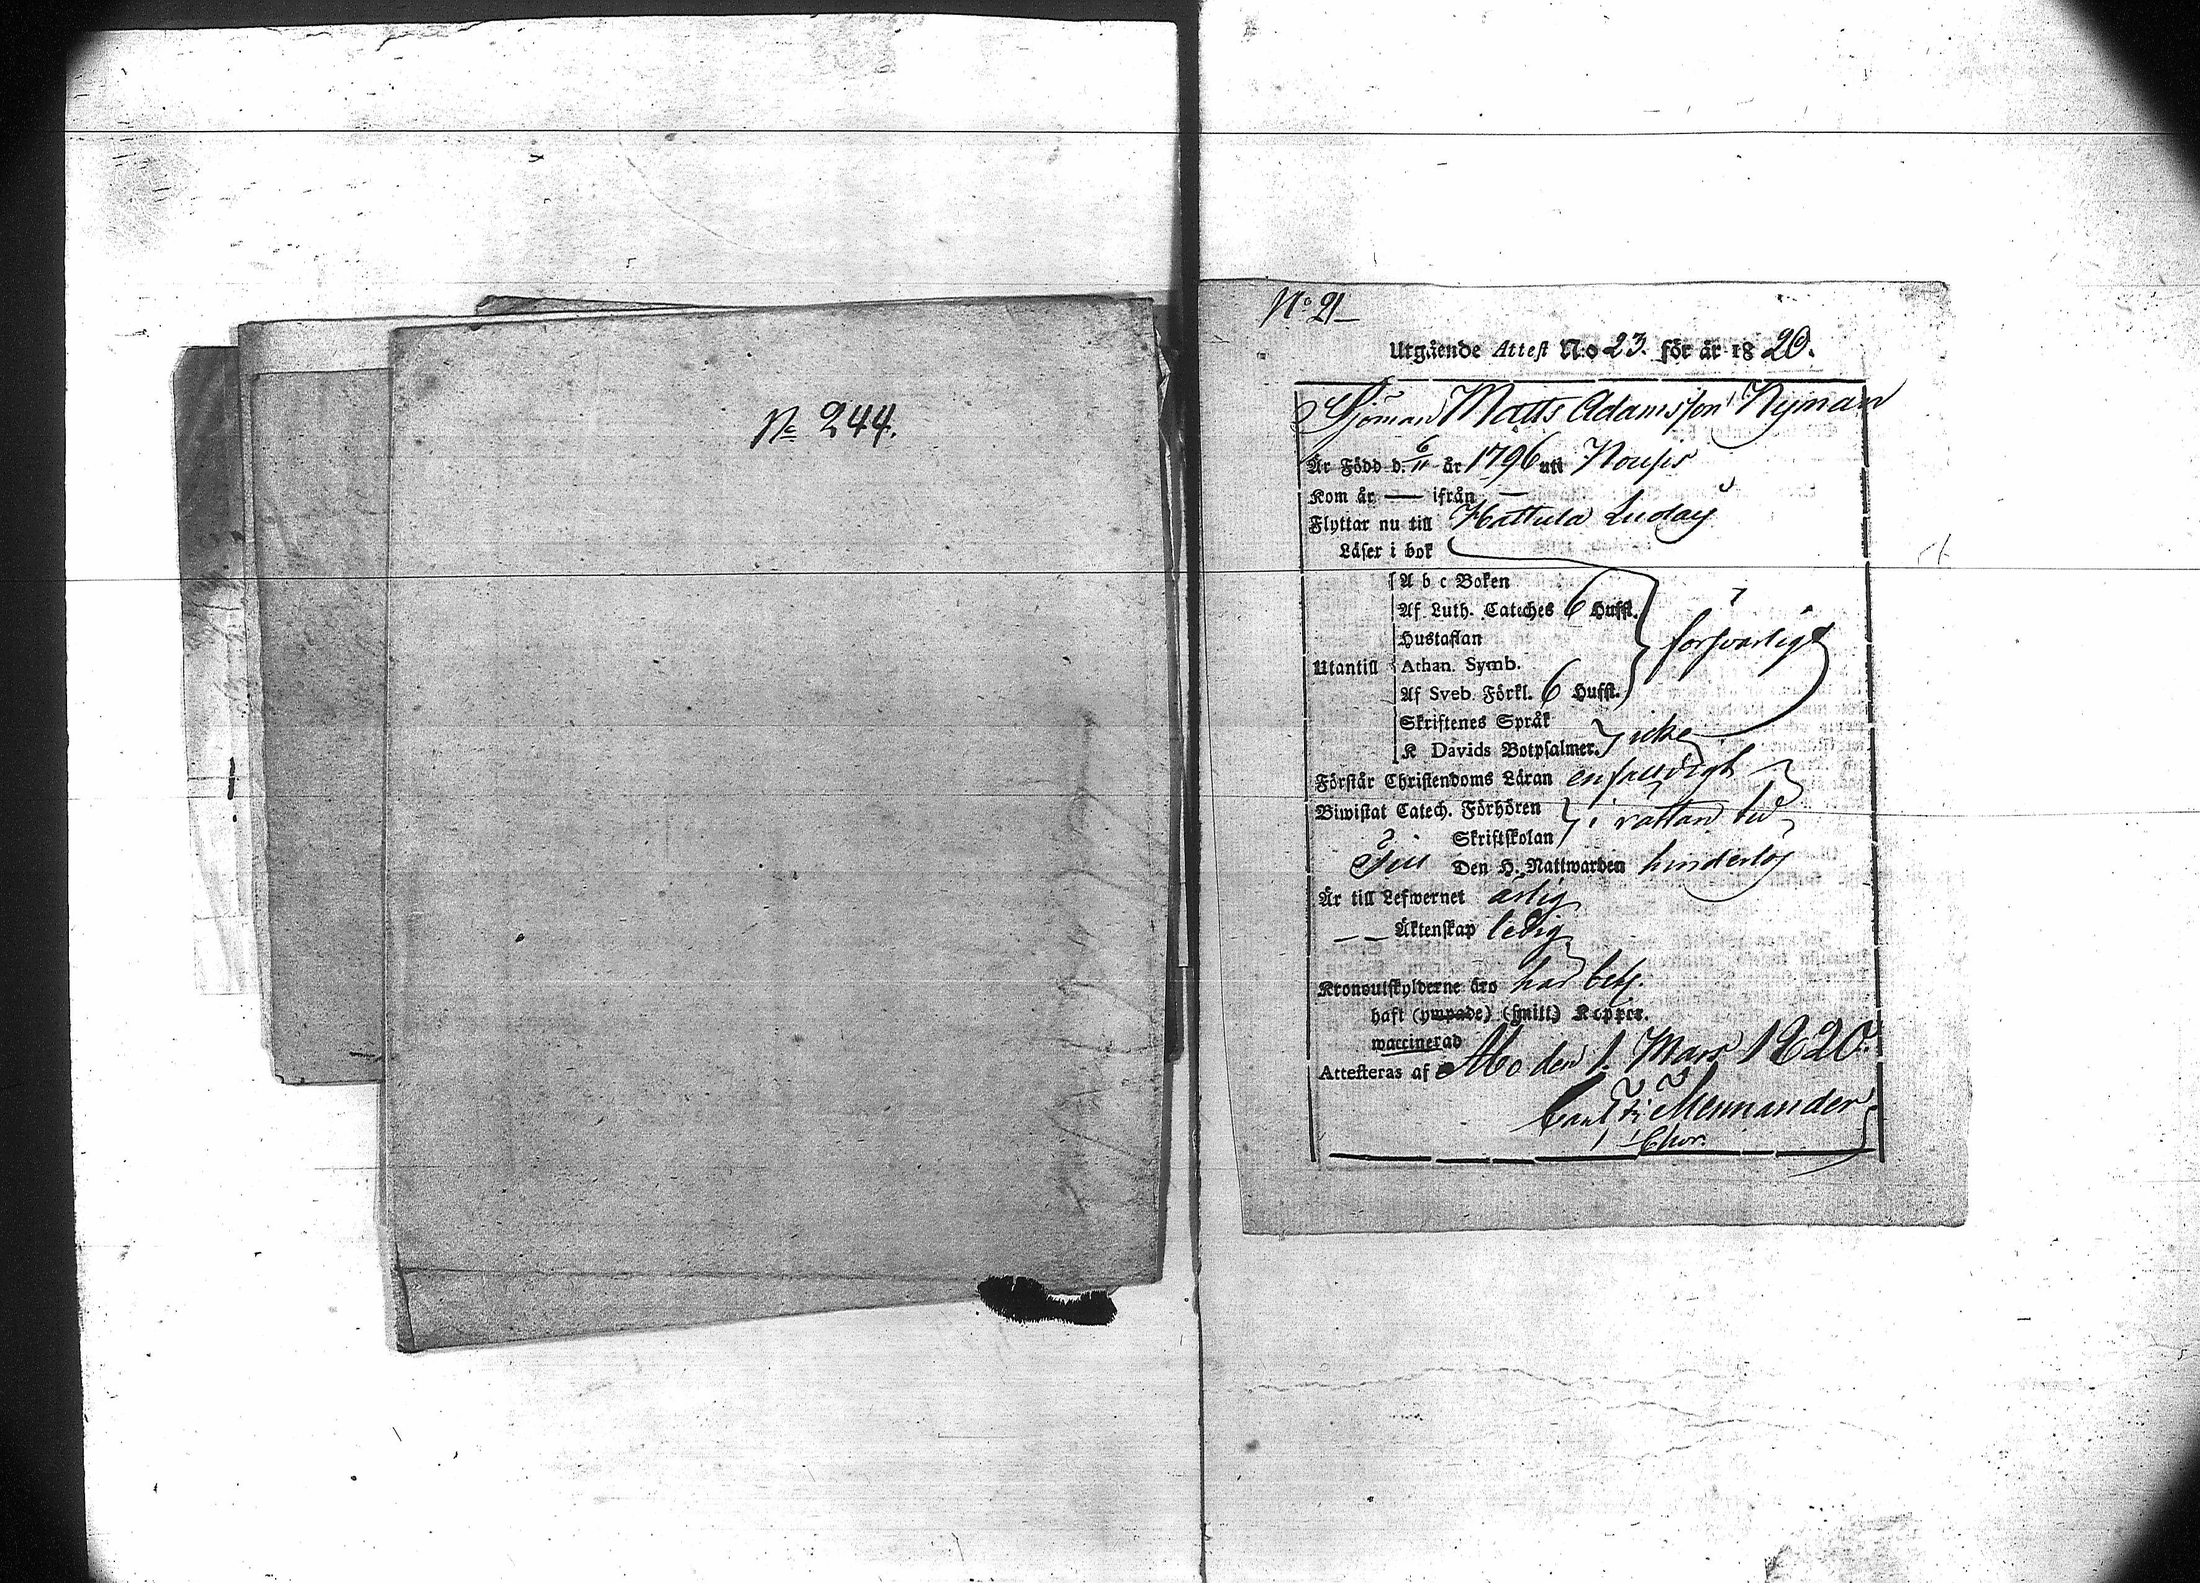 No 244.
No 21
Utgående Attest N:o 23. för år 1820.
Sjöman Matts Adamsson Nyman
Är Född d. 6/11 år 1796 uti Nousis
Kom år — ifrån —
Flyttar nu till Hattula
Läser i bok
A b c Boken
Af Luth. Cateches 6 Hufst.
Hustaflan
försvarligt
Utantill Athan. Symb.
Af Sveb. Förkl. 6 Hufst.
Skriftenes Språk
K Davids Botpsalmer. icke
Förstår Christendoms Läran enfalldigt
Biwistat Catech. Förhören
i rättan tid
Skriftskolan
Till Den H. Nattwarden hinderlös
Är till Lefwernet ärlig
— — Äktenskap ledig
Kronoutskylderne äro har bet.
haft (ympade) (smitt) Koppor.
waccinerad
Attesteras af Åbo den 1. Mars 1820.
Carl Fr. Mennander